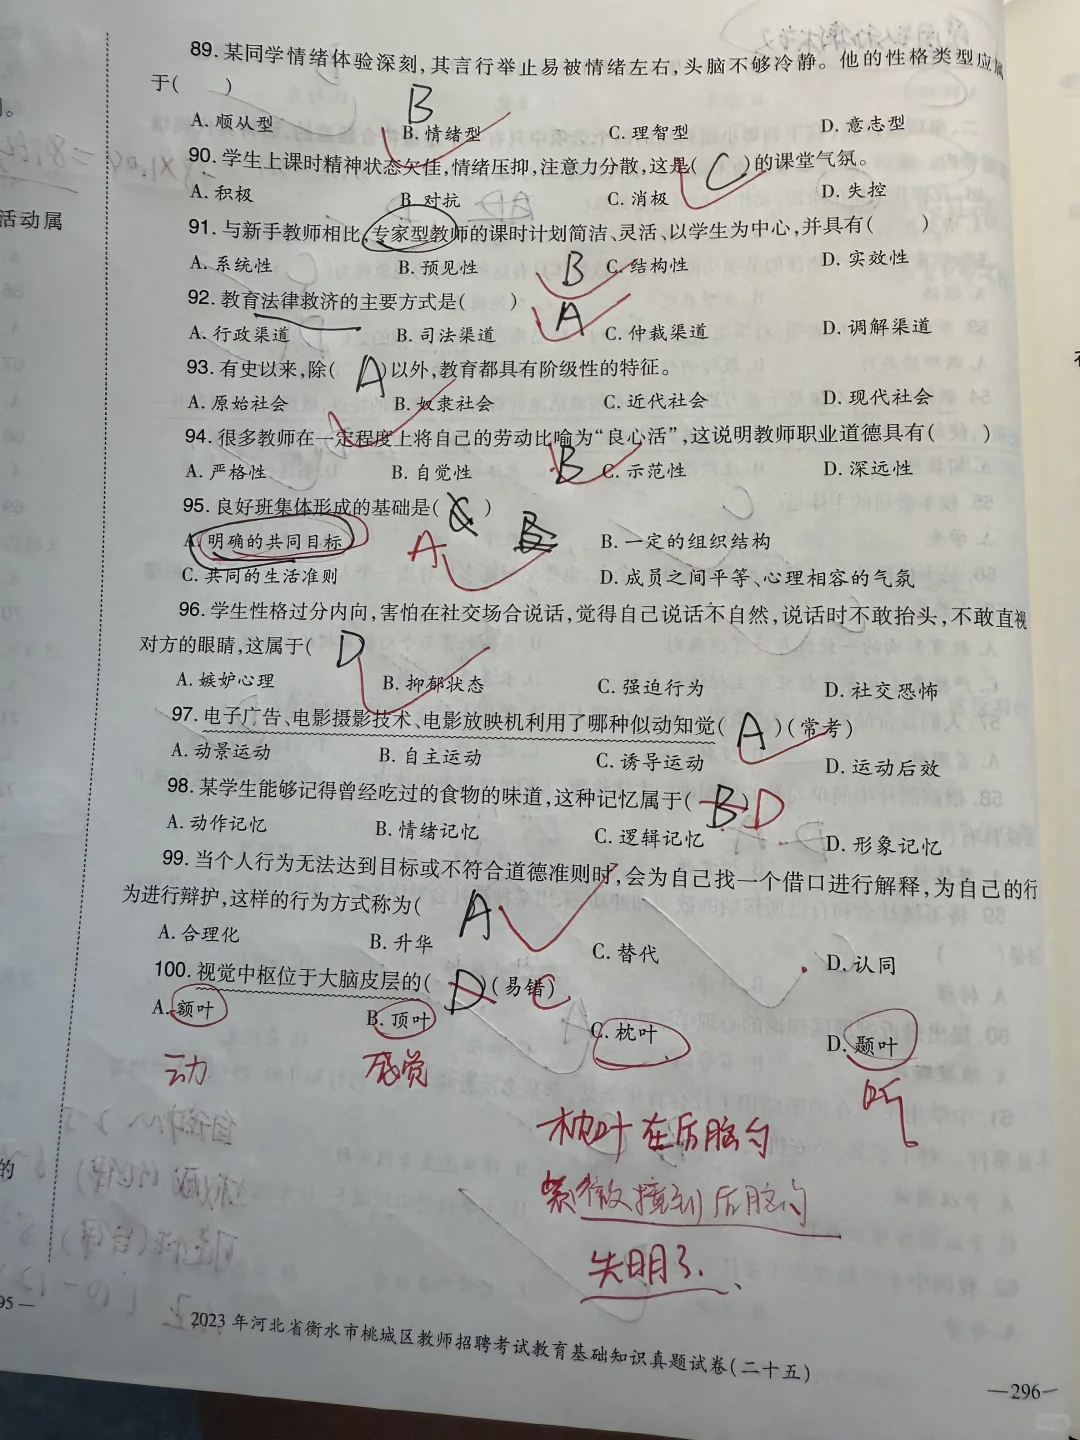 89. 某同学情绪体验深刻,其言行举止易被情绪左右,头脑不够冷静。他的性格类型应属
于(  )
B
A. 顺从型 B. 情绪型 C. 理智型 D. 意志型
90. 学生上课时精神状态欠佳,情绪压抑,注意力分散,这是( C )的课堂气氛。
A. 积极 B. 对抗 C. 消极 D. 失控
91. 与新手教师相比,专家型教师的课时计划简洁、灵活、以学生为中心,并具有(  )
A. 系统性 B. 预见性 B C. 结构性 D. 实效性
92. 教育法律救济的主要方式是(  )
A
A. 行政渠道 B. 司法渠道 C. 仲裁渠道 D. 调解渠道
93. 有史以来,除( A )以外,教育都具有阶级性的特征。
A. 原始社会 B. 奴隶社会 C. 近代社会 D. 现代社会
94. 很多教师在一定程度上将自己的劳动比喻为“良心活”,这说明教师职业道德具有(  )
A. 严格性 B. 自觉性 B C. 示范性 D. 深远性
95. 良好班集体形成的基础是( C )
A. 明确的共同目标 A B B. 一定的组织结构
C. 共同的生活准则 D. 成员之间平等、心理相容的气氛
96. 学生性格过分内向,害怕在社交场合说话,觉得自己说话不自然,说话时不敢抬头,不敢直视
对方的眼睛,这属于( D
A. 嫉妒心理 B. 抑郁状态 C. 强迫行为 D. 社交恐怖
97. 电子广告、电影摄影技术、电影放映机利用了哪种似动知觉( A )(常考)
A. 动景运动 B. 自主运动 C. 诱导运动 D. 运动后效
98. 某学生能够记得曾经吃过的食物的味道,这种记忆属于( B ) D
A. 动作记忆 B. 情绪记忆 C. 逻辑记忆 D. 形象记忆
99. 当个人行为无法达到目标或不符合道德准则时,会为自己找一个借口进行解释,为自己的行
为进行辩护,这样的行为方式称为( A
A. 合理化 B. 升华 C. 替代 D. 认同
100. 视觉中枢位于大脑皮层的( D )(易错) C
A. 额叶 B. 顶叶 C. 枕叶 D. 颞叶
动 感觉 听
枕叶在后脑勺
紧微撞到后脑勺
失明了.
2023年河北省衡水市桃城区教师招聘考试教育基础知识真题试卷(二十五)
—296—
活动属
的
95—